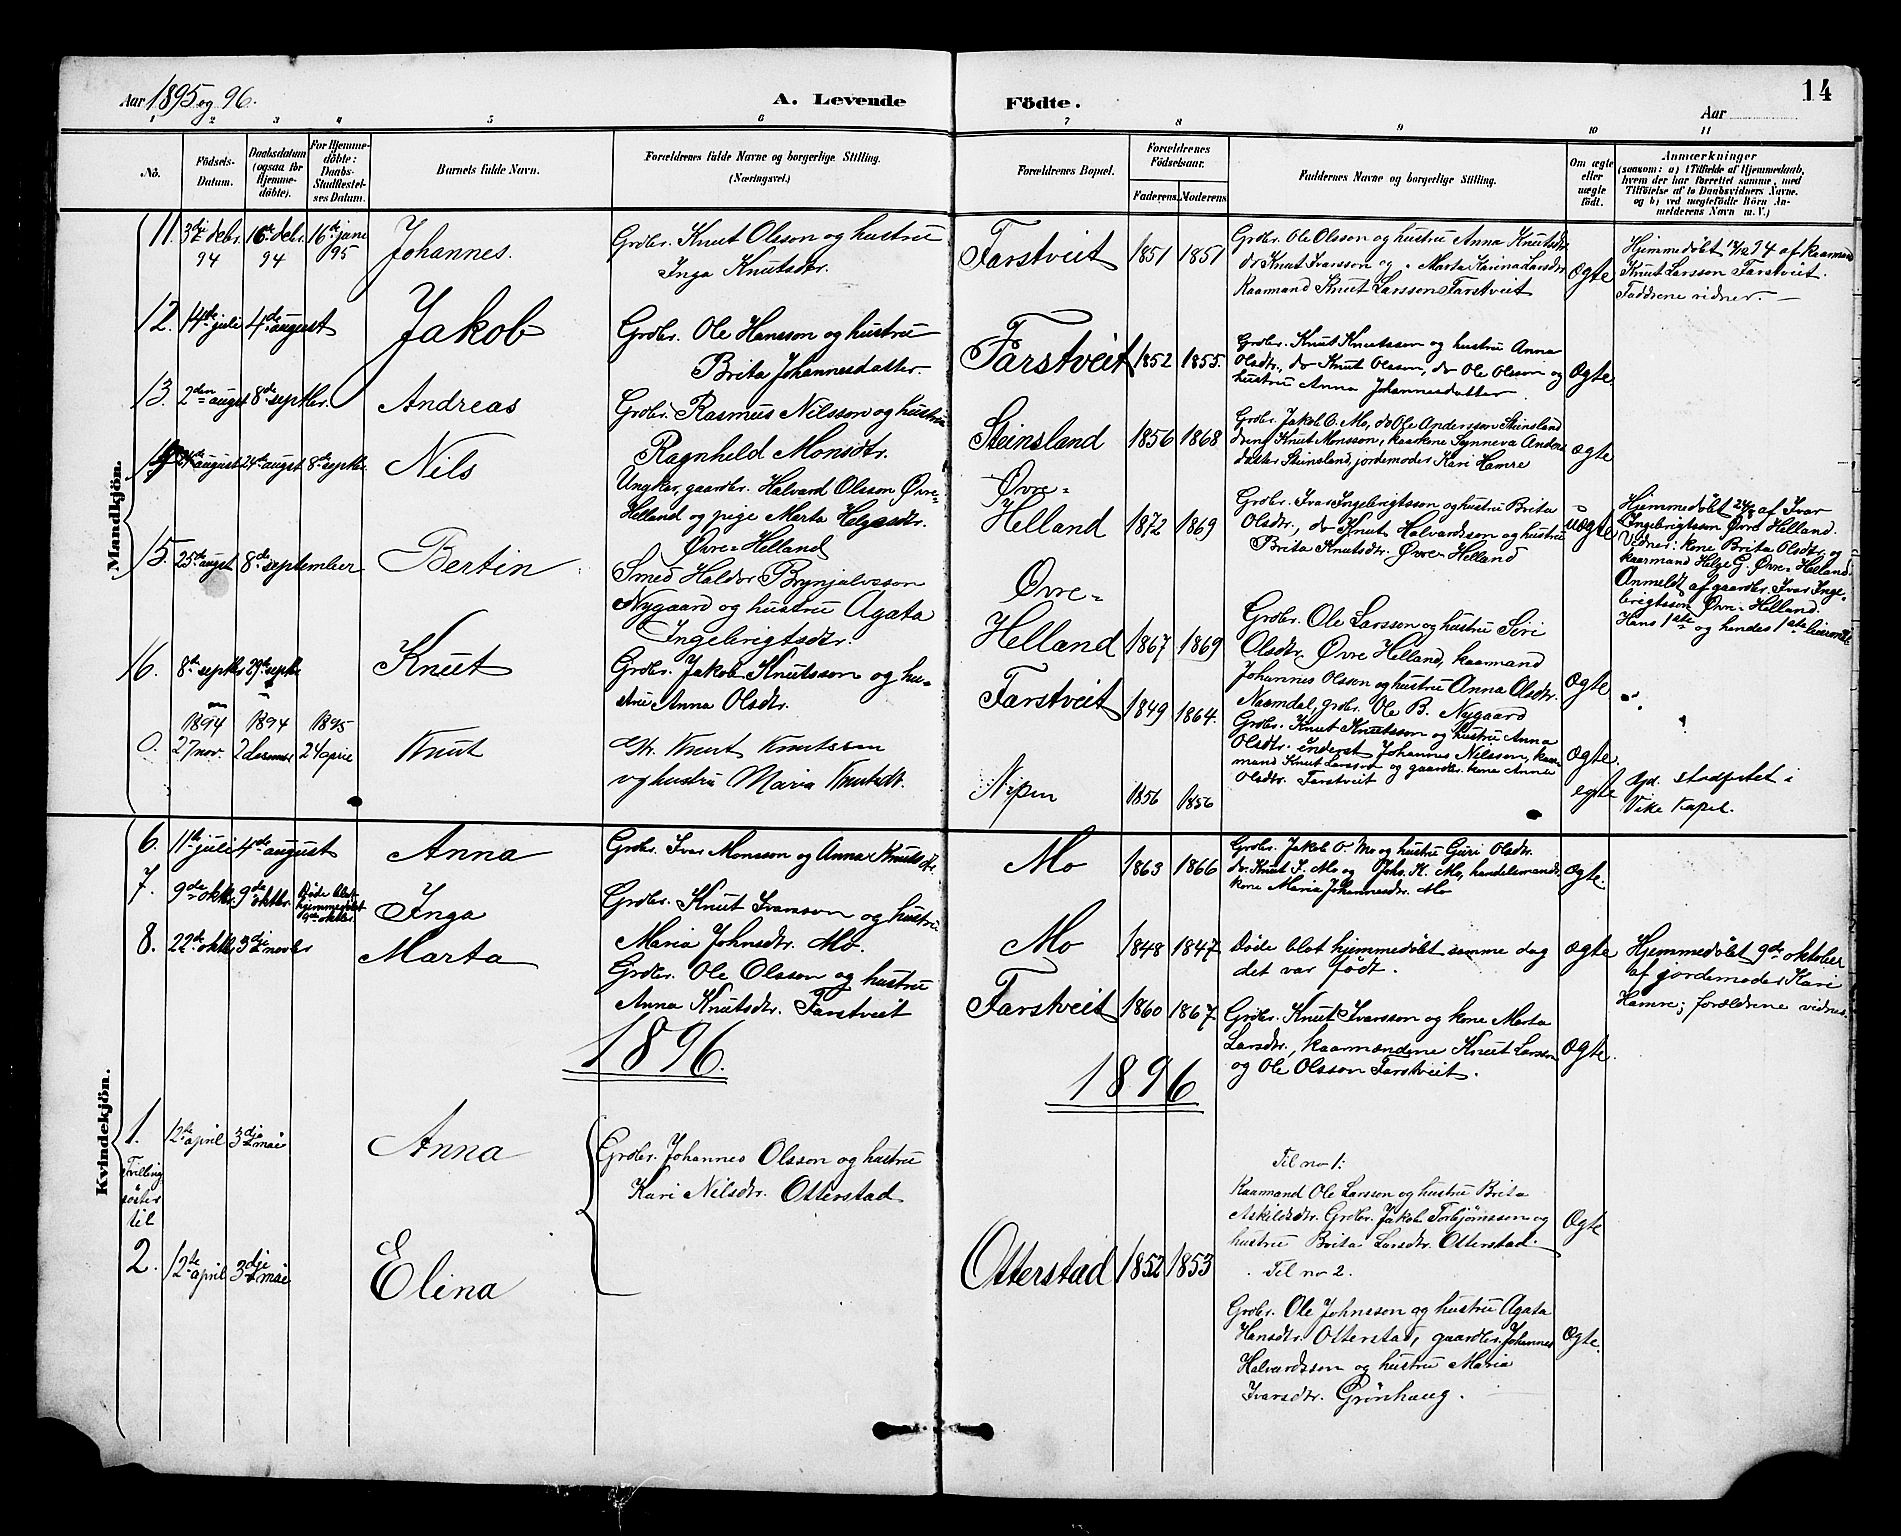 Aar 1895 og 96.
A. Levende
Födte.
14
Aar
1 2 3 4 5 6 7 8 9 10 11
No.
Födsels-
Datum.
Daabsdatum
(ogsaa for
Hjemme-
döbte).
For Hjemme-
döbte:
Daabs-
Stadfæstel-
ses Datum.
Barnets fulde Navn.
Forældrenes fulde Navne og borgerlige Stilling.
(Næringsvei.)
Forældrenes Bopæl.
Forældrenes
Födselsaar.
Faderens.
Moderens.
Faddernes Navne og borgerlige Stilling.
Om ægte
eller
uægte
födt.
Anmærkninger
(saasom: a) i Tilfælde af Hjemmedaab,
hvem der har forrettet samme, med
Tilföielse af to Daabsvidners Navne,
og b) ved uægtefödte Börn An-
melderens Navn m. V.)
Mandkjön.
11. 3die debr. 94 16de debr. 94 16de juni 95 Johannes.
Grdbr. Knut Olsson og hustru
Inga Knutsdtr.
Farstveit 1851 1851
Grdbr. Ole Olsson og hustru Anna Knutsdtr.
do Knut Ivarsson og „ Marta Karina Larsdtr.
Kaarmand Knut Larsson Farstveit
Ogte
Hjemmedøbt 13/12 94 af kaarmand
Knut Larsson Farstveit.
Faddrene vidner. —
12. 14de juli 4de august Jakob
Grdbr. Ole Hansson og hustru
Brita Johannesdatter
Farstveit 1852 1855.
Grdbr. Knut Knutsson og hustru Anna
Olsdtr., do Knut Olsson, do Ole Olsson og
hustru Anna Johannesdatter.
Ogte.
13. 2den augst 8de septbr. Andreas
Grdbr. Rasmus Nilsson og hustru
Ragnheld Monsdtr.
Steinsland 1856 1868
Grdbr. Jakob O. Mo, do Ole Andersson Steinsland
dreng Knut Monsson, kaarkone Synneva Anders
datter Steinsland, jordemoder Kari Hamre
Ogte
14. 24de august 24de augst 8de septbr. Nils
Ungkar, gaardbr. Halvard Olsson Øvre-
Helland og pige Marta Helgesdtr.
Øvre-Helland
Øvre-
Helland 1872 1869
Grdbr. Ivar Ingebrigtsson og hustru Brita
Olsdtr., do Knut Halvardsson og hustru
Brita Knutsdtr. Øvre-Helland
uogte
Hjemmedøbt 24/8 af Ivar
Ingebrigtsson Øvre Helland.
Vidner: kone Brita Olsdtr. og
kaarmand Helge G. Øvre-Helland.
Anmeldt af gaardbr. Ivar Inge-
brigtsson Øvre-Helland.
Hans 1ste og hendes 1ste leiermaal
15. 25de augst 8de september Bertin
Smed Haldor Brynjulvsson
Nygaard og hustru Agata
Ingebrigtsdtr.
Øvre-
Helland 1867 1869
Grdbr. Ole Larsson og hustru Siri
Olsdtr. Øvre Helland, kaarmand
Johannes Olsson og hustru Anna Olsdtr.
Naamdal, grdbr. Ole B. Nygaard
Ogte
16. 8de septbr 29de septbr Knut
Grdbr. Jakob Knutsson og hu-
stru Anna Olsdtr.
Farstveit 1849 1864.
Grdbr. Knut Knutsson og hustru Anna
Olsdtr. inderst Johannes Nilsson, kaar-
mand Knut Larsson og gaardbr. kone Anna
Olsdtr. Farstveit
Ogte.
0. 1894 27 nov. 1894 2 desember 1895 24 april Knut
Gbr. Knut Knutssen
og hustru Maria Knutsdt.
Nipen 1856 1856
egte
Opd. stadfestet i
Vike Kapel.
Kvindekjön.
6. 11te juli 4de august Anna
Grdbr. Ivar Monsson og Anna Knutsdtr.
Mo 1863 1866
Grdbr. Jakob O. Mo og hustru Guri Olsdtr.
do. Knut I. Mo og Johs. K. Mo, handelsmands
kone Maria Johannesdtr. Mo
Ogte.
7. 9de oktbr. 9de oktbr. Døde blot
hjemmedøbt
9de oktbr. Inga
Grdbr. Knut Ivarsson og hustru
Maria Johnsdtr. Mo.
Mo 1848 1847
Døde blot hjemmedøbt samme dag
det var født.
Ogte
Hjemmedøbt 9de oktober
af jordemoder Kari
Hamre; forældrene vidner.
8. 22de oktbr 3die novbr Marta
Grdbr. Ole Olsson og hustru
Anna Knutsdtr. Farstveit
Farstveit 1860 1867.
Grdbr. Knut Ivarsson og kone Marta
Larsdtr., kaarmændene Knut Larsson
og Ole Olsson Farstveit.
Ogte.
1896.
1896
1. 12te april 3dje mai Anna
Tvilling
søster
til
Grdbr. Johannes Olsson og hustru
Kari Nilsdtr. Otterstad
Til no 1:
Kaarmand Ole Larsson og hustru Brita
Askildsdtr. Grdbr. Jakob Torbjørnsson og
hustru Brita Larsdtr. Otterstad.
Ogte
2. 12te april 3dje mai Elina
Otterstad 1852 1853
Til no 2.
Grdbr. Ole Johnsson og hustru Agata
Hansdtr. Otterstad, gaardbr. Johannes
Halvardsson og hustru Maria
Ivarsdtr. Grønhaug.
Ogte.